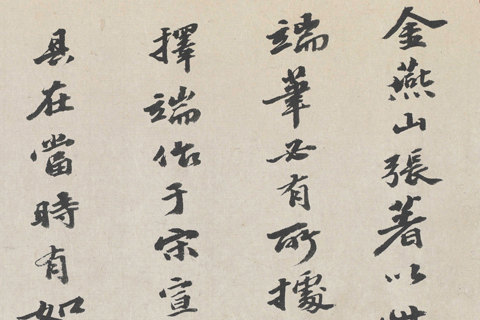 金燕山張著以
端筆必有所據
擇端于宋宣
具在當時有如